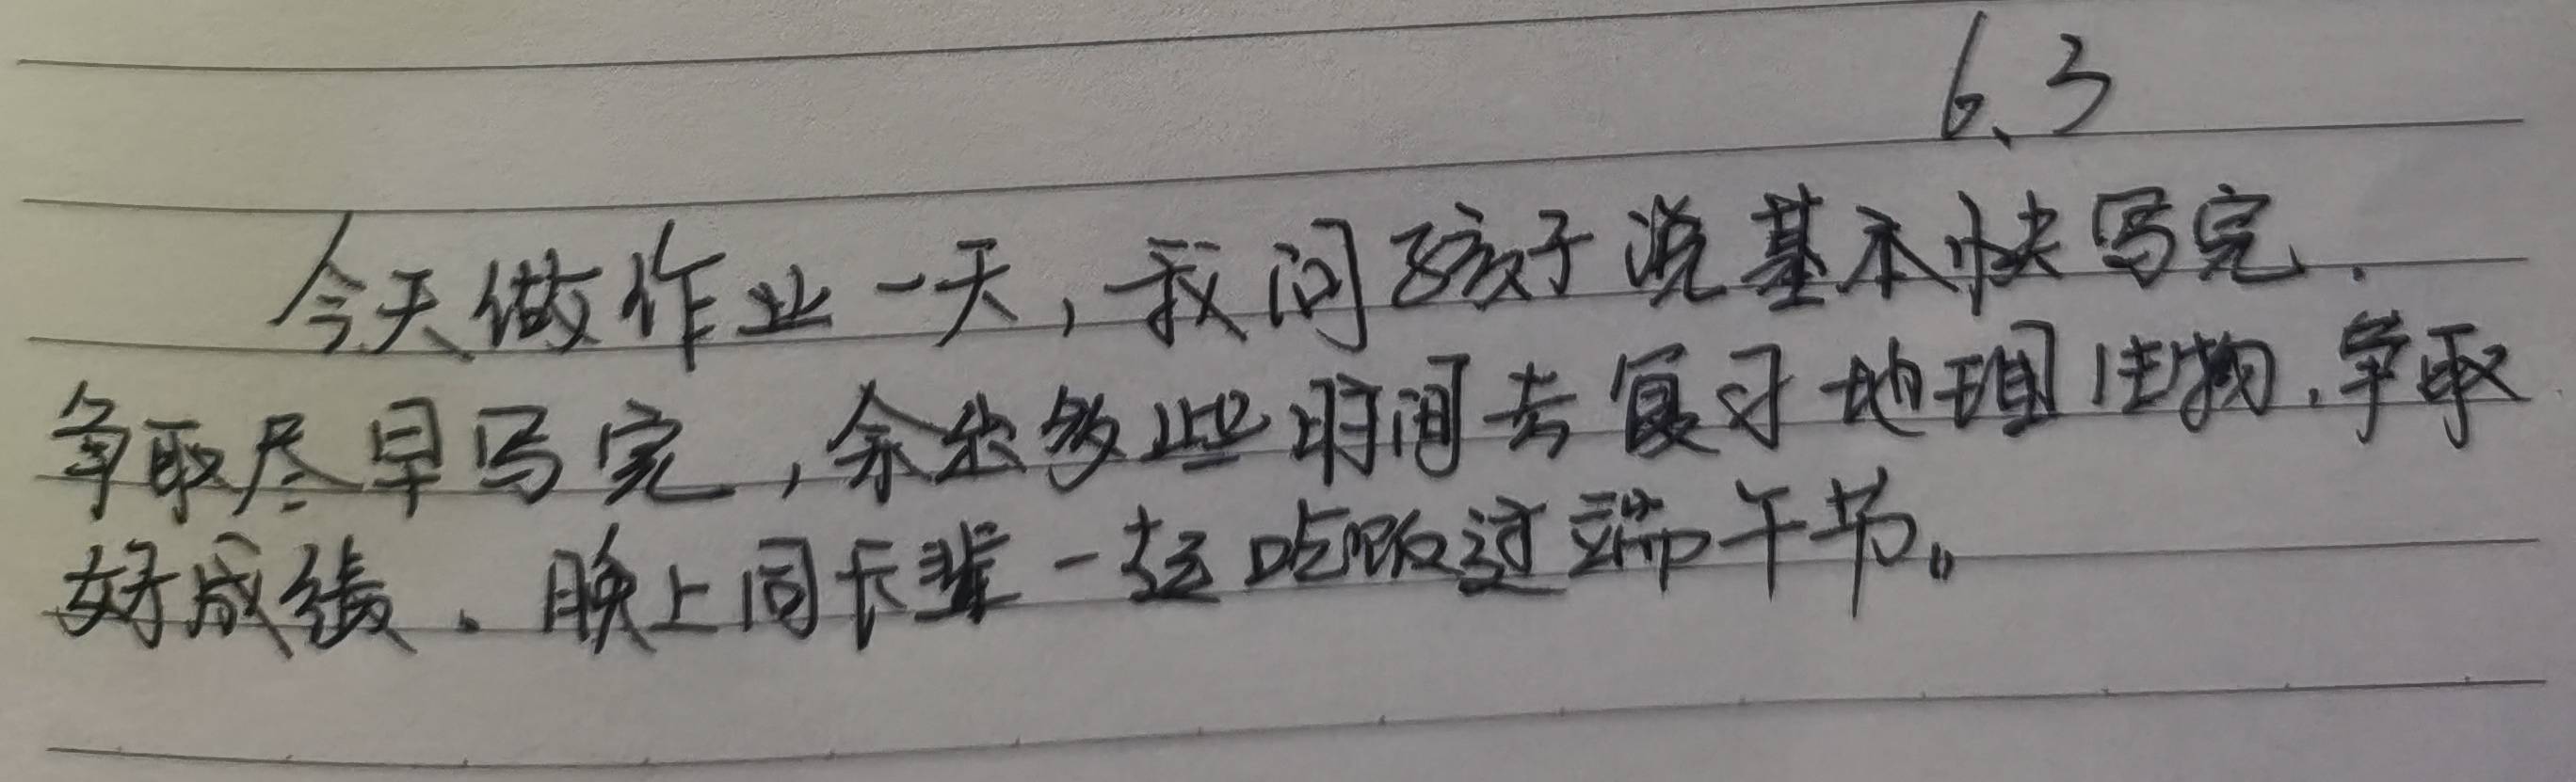 6.3
今天做作业一天，我问孩子说基本快写完.
争取尽早写完，余出多些时间去复习地理生物.争取
好成绩.晚上同长辈一起吃饭过端午节。